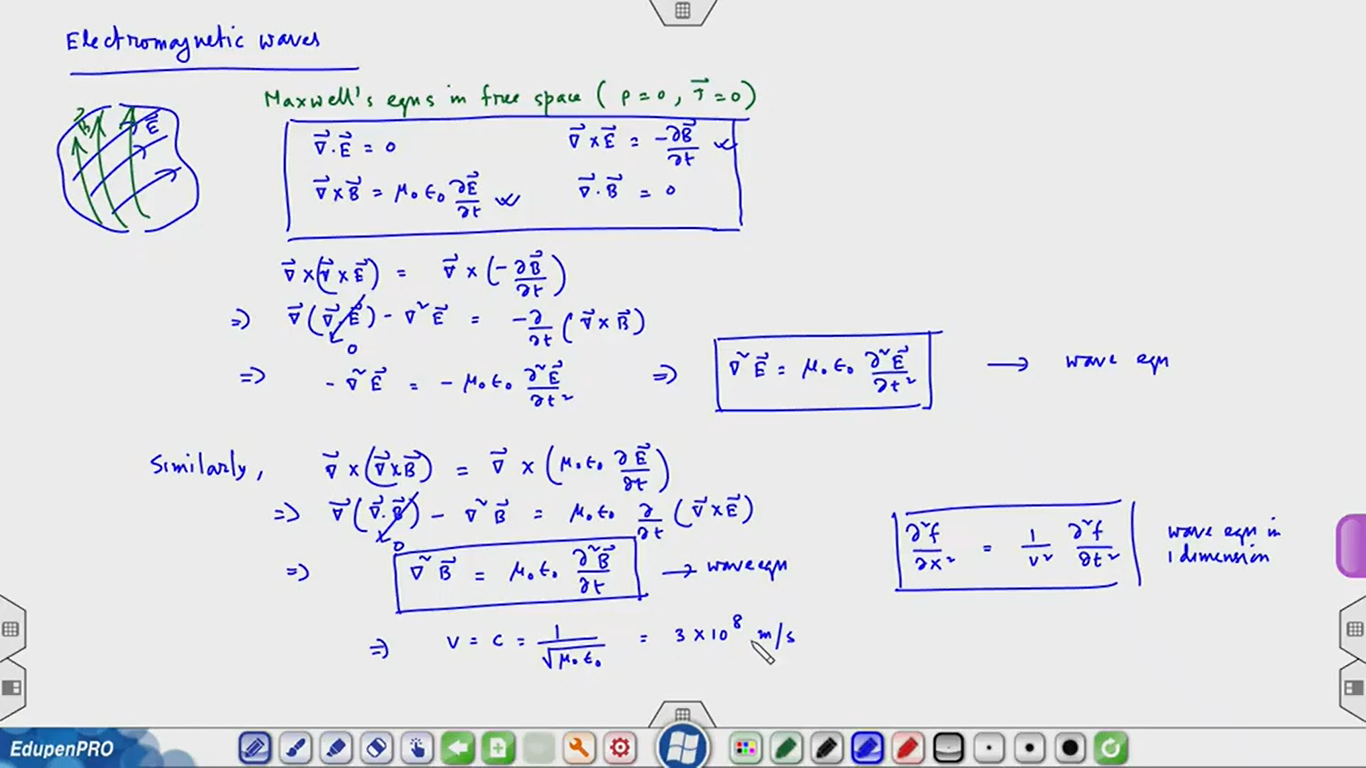 Electromagnetic waves
Maxwell's eqns in free space ( ρ=0, J⃗=0 )
B⃗ E⃗
∇⃗.E⃗ = 0 ∇⃗×E⃗ = -∂B⃗/∂t
∇⃗×B⃗ = μ₀ε₀ ∂E⃗/∂t ∇⃗.B⃗ = 0
∇⃗×(∇⃗×E⃗) = ∇⃗×(-∂B⃗/∂t)
⇒ ∇⃗(∇⃗.E⃗) - ∇²E⃗ = -∂/∂t (∇⃗×B⃗)
0
⇒ -∇²E⃗ = -μ₀ε₀ ∂²E⃗/∂t² ⇒ ∇²E⃗ = μ₀ε₀ ∂²E⃗/∂t² → wave eqn
Similarly, ∇⃗×(∇⃗×B⃗) = ∇⃗×(μ₀ε₀ ∂E⃗/∂t)
⇒ ∇⃗(∇⃗.B⃗) - ∇²B⃗ = μ₀ε₀ ∂/∂t (∇⃗×E⃗)
0
⇒ ∇²B⃗ = μ₀ε₀ ∂²B⃗/∂t → wave eqn
∂²f/∂x² = 1/v² ∂²f/∂t² wave eqn in
1 dimension
⇒ v = c = 1/√μ₀ε₀ = 3×10⁸ m/s
EdupenPRO